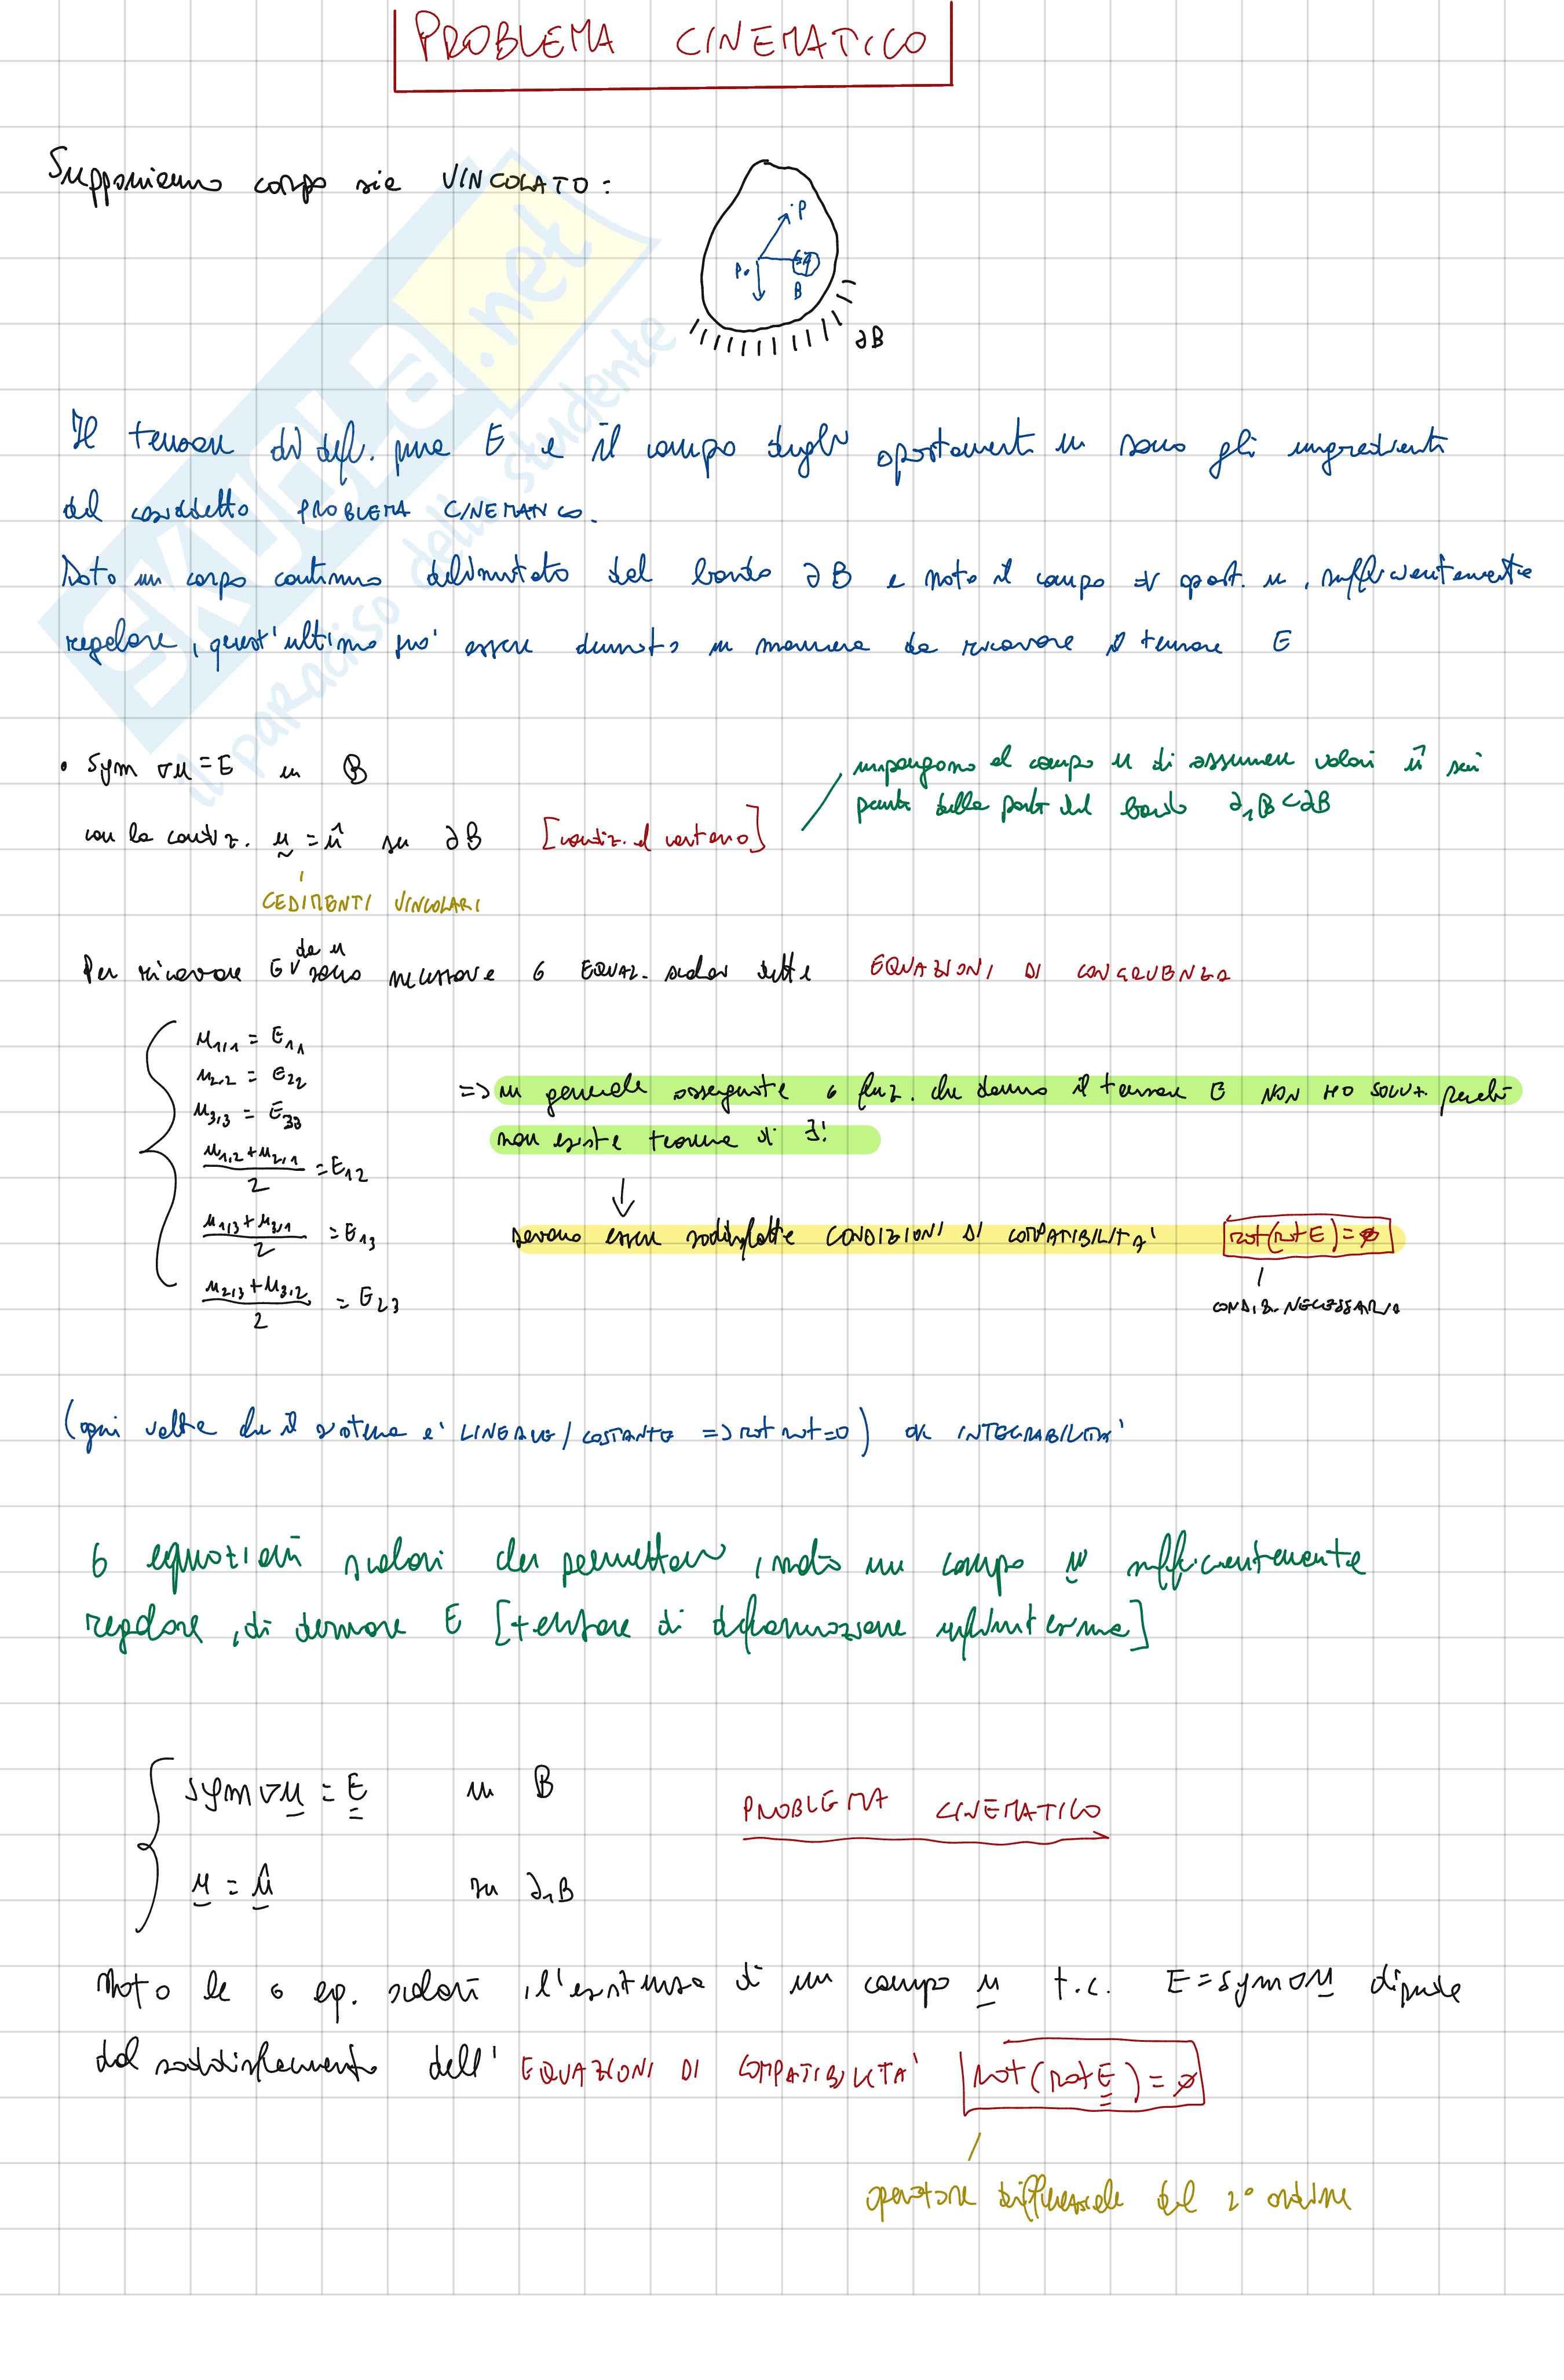 PROBLEMA CINEMATICO
Supponiamo corpo sia VINCOLATO:
P
P₀
B
∂B
Il tensore di def. pura E e il campo degli spostamenti u sono gli ingredienti
del cosiddetto PROBLEMA CINEMATICO.
Dato un corpo continuo delimitato dal bordo ∂B e noto il campo di spost. u, sufficientemente
regolare, quest'ultimo può essere derivato in maniera da ricavare il tensore E
• sym ∇u = E in B
impongono al campo u di assumere valori û sui
punti della parte del bordo ∂₁B⊂∂B
con la condiz. u = û su ∂B [condiz. al contorno]
CEDIMENTI VINCOLARI
Per ricavare E da u sono necessarie 6 EQUAZ. scalari dette EQUAZIONI DI CONGRUENZA
u₁,₁ = E₁₁
u₂,₂ = E₂₂
u₃,₃ = E₃₃
(u₁,₂+u₂,₁)/2 = E₁₂
(u₁,₃+u₃,₁)/2 = E₁₃
(u₂,₃+u₃,₂)/2 = E₂₃
=> in generale assegnate 6 funz. che danno il tensore E NON HO SOLUZ. perché
non esiste teorema di ∃!
↓
devono essere soddisfatte CONDIZIONI DI COMPATIBILITA' rot(rot E) = ∅
CONDIZ. NECESSARIA
(ogni volta che il sistema e' LINEARE/COSTANTE => rot rot=0) ok INTEGRABILITA'
6 equazioni scalari che permettono, noto un campo u sufficientemente
regolare, di derivare E [tensore di deformazione infinitesima]
sym ∇u = E in B
PROBLEMA CINEMATICO
u = û su ∂₁B
Noto le 6 eq. scalari, l'esistenza di un campo u t.c. E = sym ∇u dipende
dal soddisfacimento dell' EQUAZIONI DI COMPATIBILITA' rot(rot E) = ∅
operatore differenziale del 2° ordine
SKUOLA.net
il paradiso dello studente